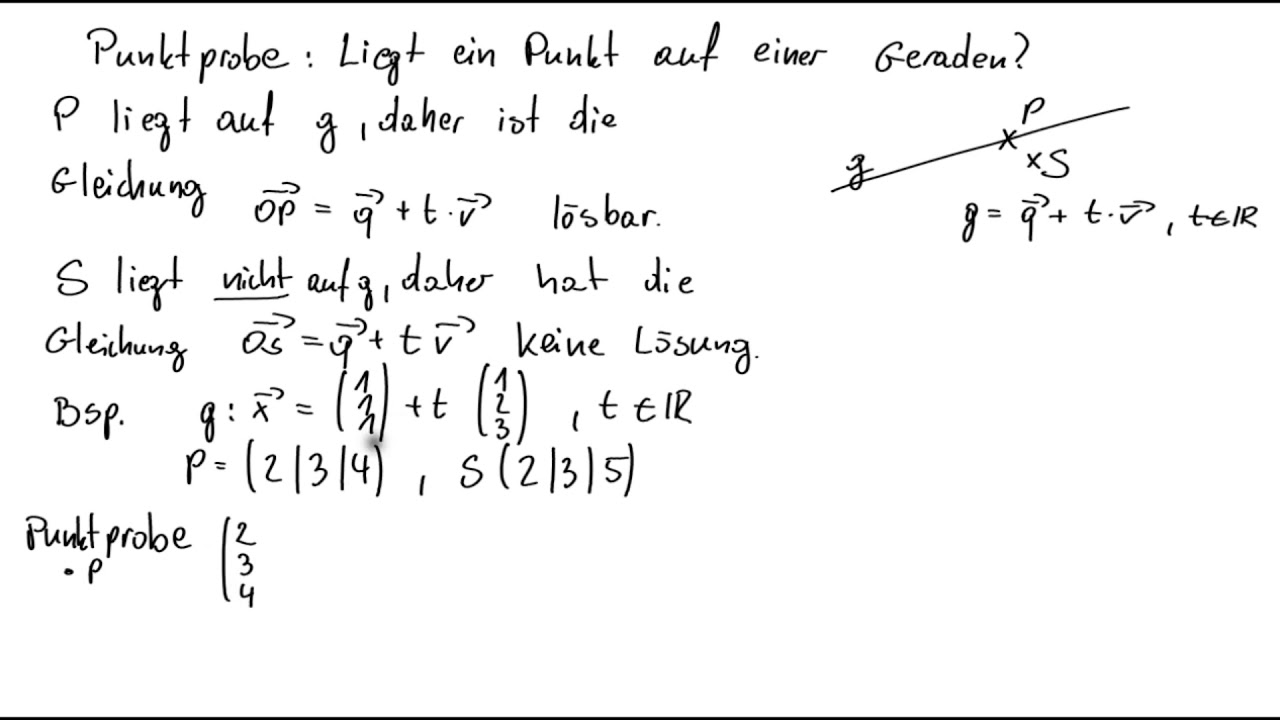 Punktprobe: Liegt ein Punkt auf einer Geraden?
P liegt auf g, daher ist die
Gleichung OP⃗ = q⃗ + t · v⃗ lösbar.
S liegt nicht auf g, daher hat die
Gleichung OS⃗ = q⃗ + t v⃗ keine Lösung.
Bsp. g: x⃗ = (1 1 1) + t (1 2 3), t ∈ ℝ
P = (2|3|4), S (2|3|5)
Punktprobe (2 3 4
• P
P
g
×S
g = q⃗ + t · v⃗, t ∈ ℝ